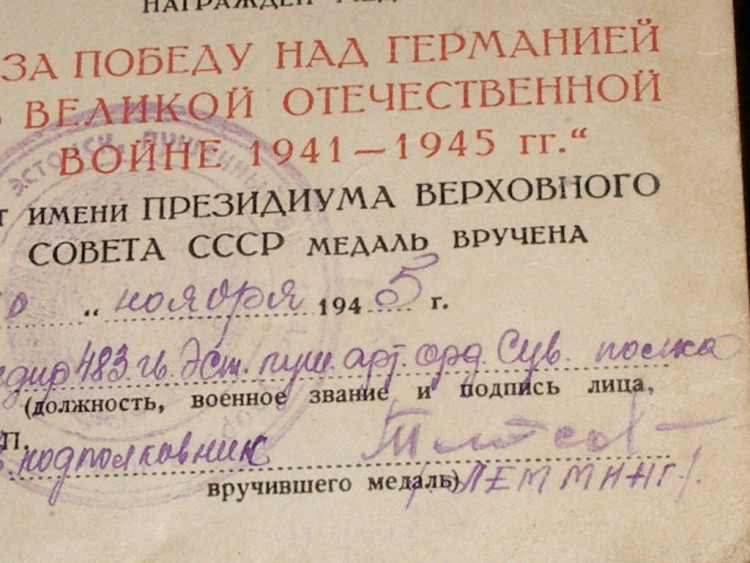 НАГРАЖДЕН МЕД
ЗА ПОБЕДУ НАД ГЕРМАНИЕЙ
В ВЕЛИКОЙ ОТЕЧЕСТВЕННОЙ
ВОЙНЕ 1941—1945 гг.“
ЭСТОНСК. ПУШЕЧНЫЙ
т ИМЕНИ ПРЕЗИДИУМА ВЕРХОВНОГО
СОВЕТА СССР МЕДАЛЬ ВРУЧЕНА
0 “ ноября 1945 г.
дир 483. гв. Эст. пуш. арт. орд. Сув. полка
(должность, военное звание и подпись лица,
П.
подполковник
вручившего медаль) (ЛЕММИНГ).